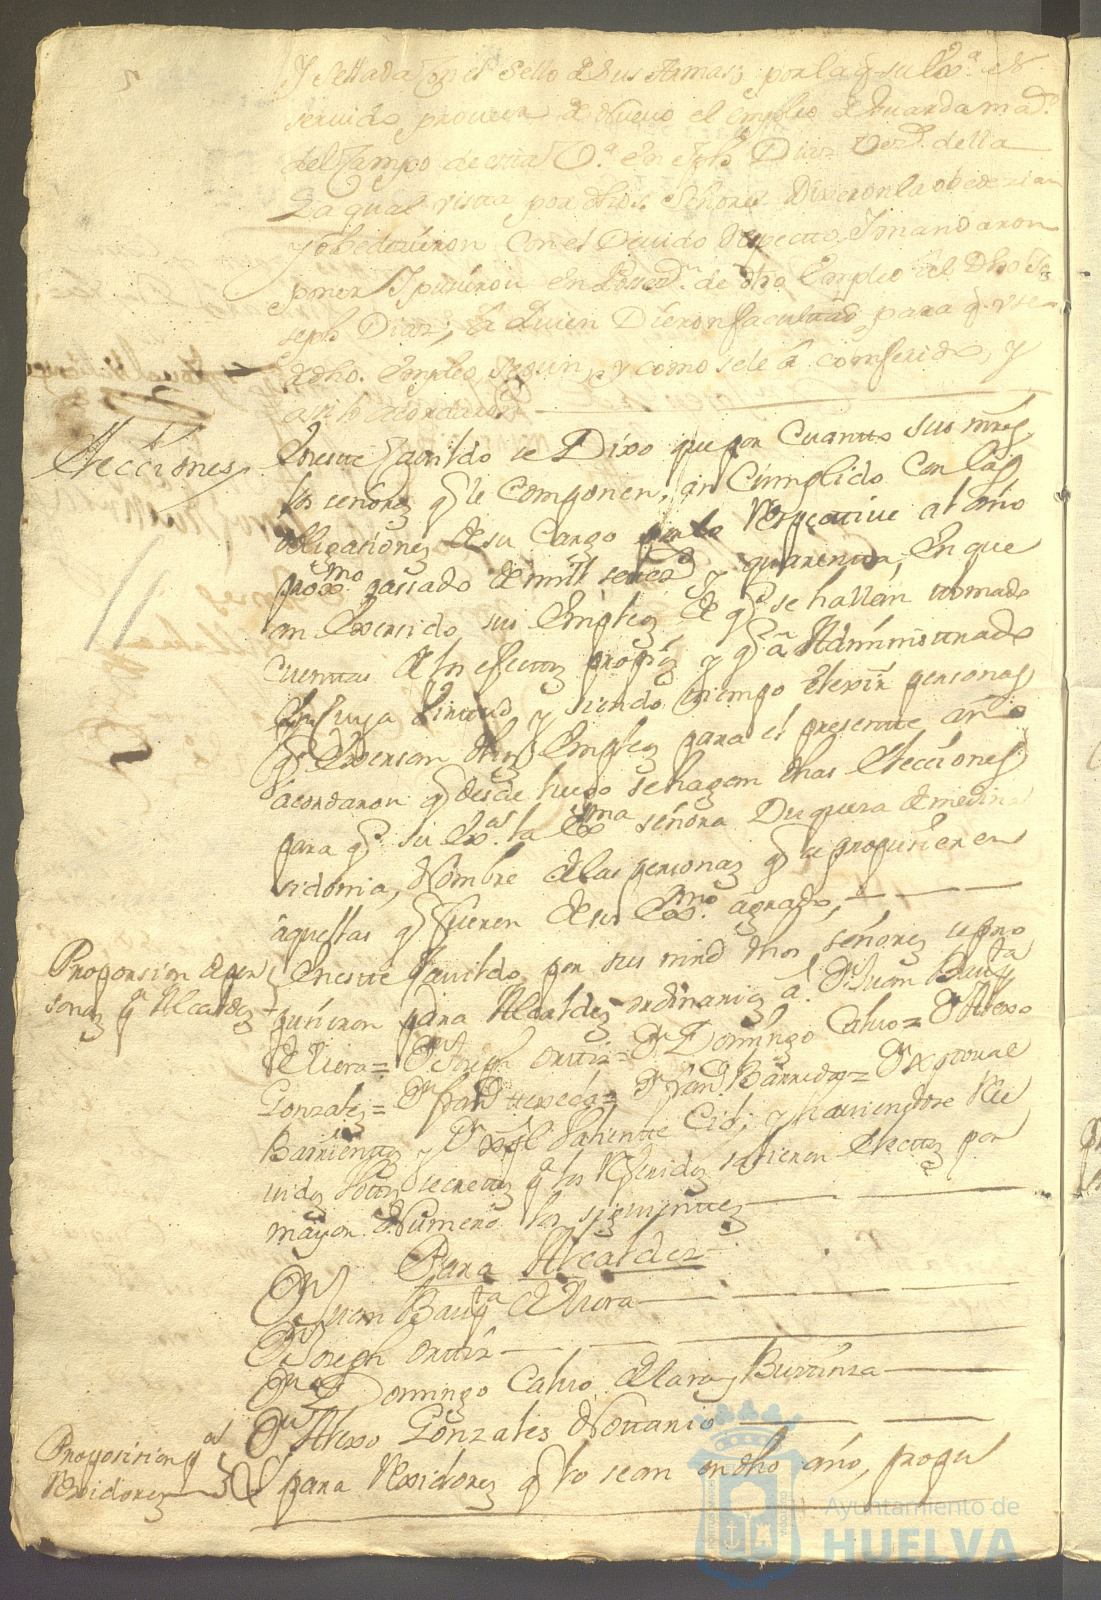 Y sellada con el sello de sus Armas, por la q su Exª. es
servido proveer de Nuevo el empleo de Guarda maor.
del Campo de esta Vª. en Jph Diaz Vezº. della
La qual vista por dhos. señores Dixeron la obedecian
y obedecieron Con el Devido Respecto, Y mandaron
poner Y pusieron en Posesn. de dho Empleo al Dho Jo
seph Diaz; a Quien Dieron facultad para q. use
dho. Empleo segun, y como se le â comferido, y
asi lo acordaron
Elecciones
En este Cavildo se Dixo que por Cuantto sus mrds
los señores q le componen, an Cumplido Con las
obligaciones de su Cargo Respective al año
proxmo passado de mill settezs y quarenta, En que
an Exersido sus Empleos de q. se hallan tomado
Cuenttas de los efectos propios y q â Administrado
En Cuya Virtud y siendo tiempo personas
q. Exersan dhos Empleos para el presente año
acordaron q desde luego se hagan dhas Elecciones
para q. su Exª. la Exma señora Duquesa de medina
sidonia, Nombre de las personas q se propusieren
aquellas q fueren de su Exmo. agrado,
Proporsion de per
sonas pª Alcaldes
En este Cavildo por sus mrd dhos señores se pro
pusieron para Alcaldes ordinarios a Dn Juan Bauta
de Mora = Dn Joseph Ortiz = Dn Domingo Calvo = Dn Alexo
Gonzales = Dn franco = Dn Barredas = Dn Xptoval
Barrientos y Dn Valiente Cid; y haviendose Rec
vidos Votos secretos pª los Referidos salieron Electos por
mayor Numero los siguientes
Para Alcaldes
Dn Juan Bauta de Mora
Dn Joseph Ortiz
Dn Domingo Calvo de Lara y
Dn Alexo Gonzales
Proposicion pª
Rexidores
para Rexidores q lo sean en dho año, propu
Ayuntamiento de
HUELVA